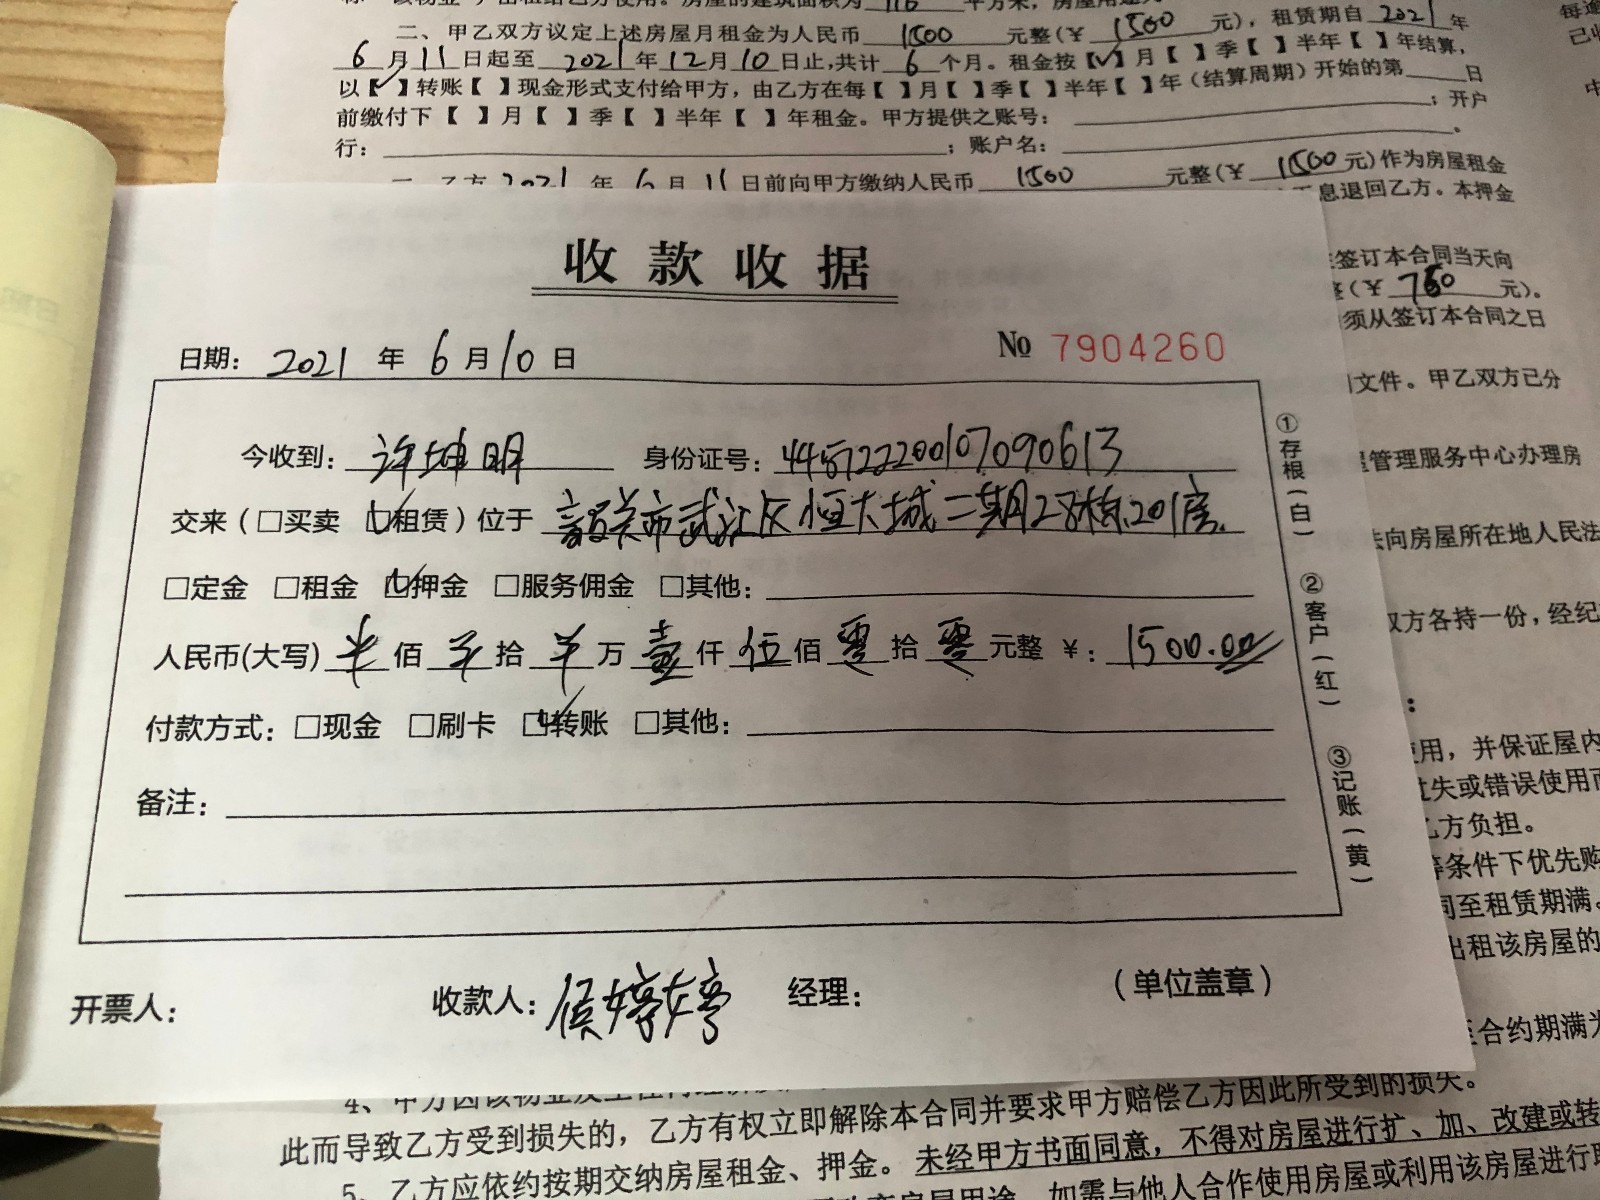 二、甲乙双方议定上述房屋月租金为人民币 1500 元整(¥ 1500 元)，租赁期自 2021 年
6 月 11 日起至 2021 年 12 月 10 日止,共计 6 个月。租金按【✓】月【 】季【 】半年【 】年结算，
以【✓】转账【 】现金形式支付给甲方，由乙方在每【 】月【 】季【 】半年【 】年(结算周期)开始的第 日
前缴付下【 】月【 】季【 】半年【 】年租金。甲方提供之账号： ；开户
行： ；账户名： 。
乙方 2021 年 6 月 11 日前向甲方缴纳人民币 1500 元整(¥ 1500 元)作为房屋租金
息退回乙方。本押金
签订本合同当天向
(¥ 750 元)。
须从签订本合同之日
文件。甲乙双方已分
管理服务中心办理房
向房屋所在地人民法
双方各持一份，经纪
收款收据
日期: 2021 年 6 月 10 日 № 7904260
今收到: 许坤明 身份证号: 445122200107090613
交来(□买卖 ☑租赁)位于 韶关市武江区恒大城二期2号栋201房
□定金 □租金 ☑押金 □服务佣金 □其他:
人民币(大写) 佰 拾 万 壹 仟 伍 佰 零 拾 零 元整 ¥: 1500.00
付款方式: □现金 □刷卡 ☑转账 □其他:
备注:
①存根(白) ②客户(红) ③记账(黄)
开票人: 收款人: 侯婷婷 经理: (单位盖章)
用，并保证屋内
失或错误使用
乙方负担。
条件下优先购
同至租赁期满。
出租该房屋的
合约期满
此而导致乙方受到损失的，乙方有权立即解除本合同并要求甲方赔偿乙方因此所受到的损失。
5、乙方应依约按期交纳房屋租金、押金。未经甲方书面同意，不得对房屋进行扩、加、改建或转
如需与他人合作使用房屋或利用该房屋进行